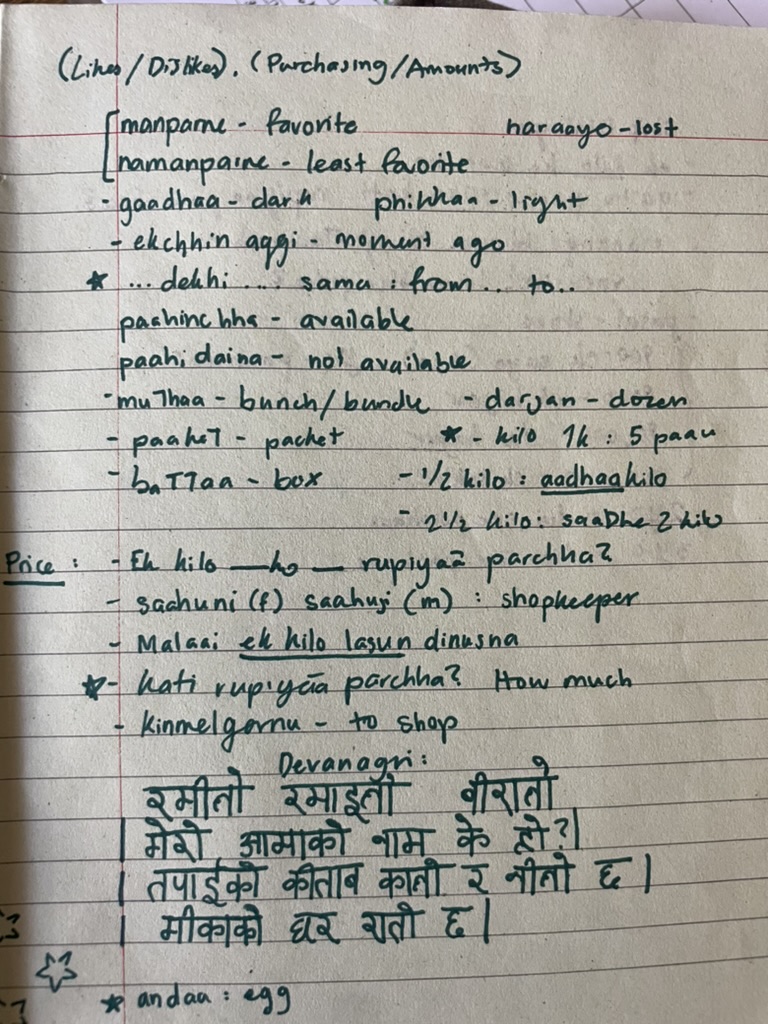 (Likes/Dislikes). (Purchasing/Amounts)
manparne - favorite haraayo - lost
namanparne - least favorite
- gaadhaa - dark phikkaa - light
- ekchhin aggi - moment ago
* ... dekhi ... sama : from .. to..
paahinchha - available
paahidaina - not available
- muThaa - bunch/bundle - darjan - dozen
- paakeT - packet * - kilo 1k : 5 paau
- baTTaa - box - 1/2 kilo : aadhaakilo
- 2 1/2 kilo: saaDhe 2 kilo
Price : - Ek kilo — ko — rupiyaā parchha?
- saahuni (f) saahuji (m) : shopkeeper
- Malaai ek kilo lasun dinusna
* - kati rupiyāa parchha? How much
- kinmelgarnu - to shop
Devanagri:
रमीतो रमाइतो वीरातो
| मेरो आमाको नाम के हो? |
| तपाईको कीताब कालो र नीलो छ |
| मीकाको घर रातो छ |
* andaa : egg